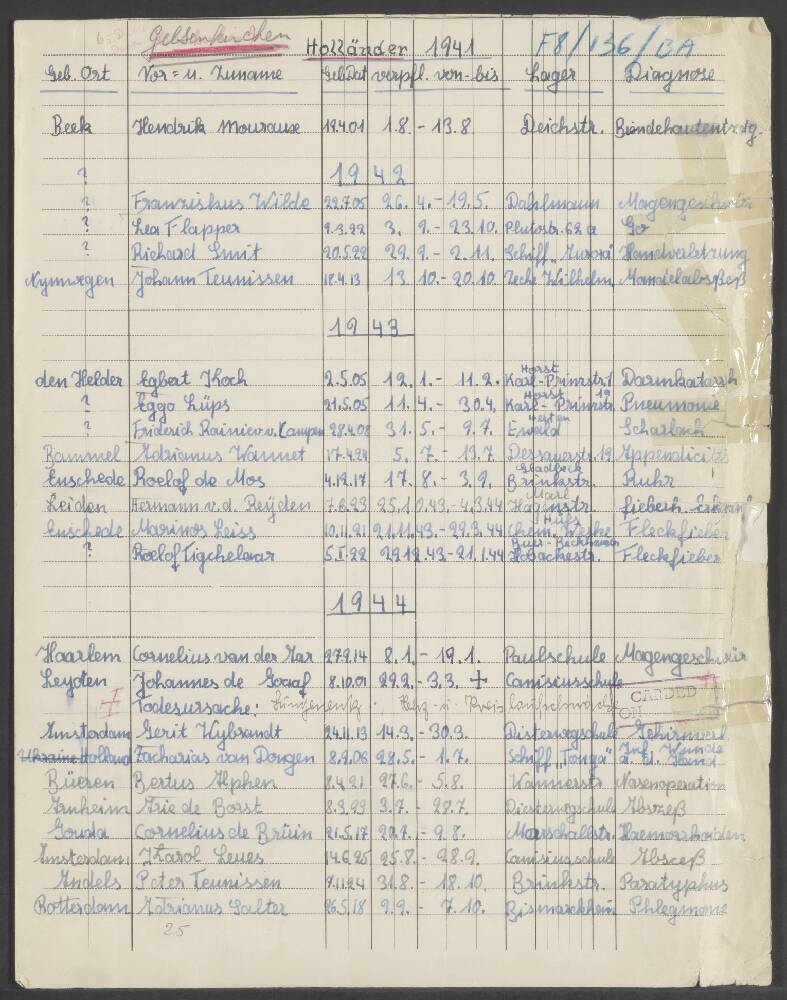 Gelsenkirchen Holländer 1941 F8/136/BA
Geb. Ort Vor= u. Zuname Geb.Dat verpfl. von-bis Lager Diagnose
Beek Hendrik Mouraux 19.4.01 1.8. - 13.8. Deichstr. Bindehautentzdg.
1942
? Franziskus Wilde 22.7.05 26.4. - 19.5. Dahlmann Magengeschwür
? Lea Flapper 9.3.22 3.9. - 23.10. Plutostr. 62a Go
? Richard Smit 20.5.22 29.9. - 2.11. Schiff "Aurora" Handverletzung
Nymwegen Johann Teunissen 18.4.13 13.10. - 20.10. Zeche Wilhelm Mandelabszeß
1943
den Helder Egbert Koch 2.5.05 12.1. - 11.2. Horst Karl-Prinzstr. 1 Darmkatarrh
? Eggo Lüps 21.5.05 11.4. - 30.4. Horst Karl-Prinzstr. 19 Pneumonie
? Friderich Rainier v. Kampen 28.4.08 31.5. - 9.7. Herten Ewald Scharlach
Bammel Adrianus Wannet 17.4.24 5.7. - 13.7. Dessauerstr. 19 Appendicitis
Enschede Roelof de Mos 4.12.17 17.8. - 3.9. Gladbeck Brinkstr. Ruhr
Leiden Hermann v.d. Reÿden 7.6.23 25.10.43. - 4.3.44 Marl Hagenstr. fieberh.
Enschede Marinos Leiss 10.11.21 21.11.43. - 29.3.44 Hüls Chem. Werke Fleckfieber
? Roelof Tigchelaar 5.I.22 29.12.43 - 21.1.44 Buer-Beckhausen Fleckfieber
1944
Haarlem Cornelius van der Mar 27.9.14 8.1. - 19.1. Paulschule Magengeschwür
Leyden Johannes de Graaf 8.10.01 29.2. - 3.3. + Canisiusschule
Todesursache: Lungenentz., Herz- u. Kreislaufschwäche
CARDED
ON
Amsterdam Gerit Wybrandt 24.11.13 14.3. - 30.3. Diesterwegschule
Ukraine Holland Zacharias van Dongen 8.9.06 28.5. - 1.7. Schiff "Tonga" Inf. Wunde a. d. Hand
Büeren Bertus Alphen 8.4.21 27.6. - 5.8. Wannerstr. Nasenoperation
Arnheim Arie de Borst 8.3.99 3.7. - 28.7. Diesterwegschule Abszeß
Gouda Cornelius de Brüin 21.5.17 20.7. - 9.8. Marschallstr. Haemorrhoiden
Amsterdam Karol Leues 14.6.25 25.8. - 28.9. Canisiusschule Absceß
Andels Peter Teunissen 7.11.24 31.8. - 18.10. Brinkstr. Paratyphus
Rotterdam Adrianus Salter 26.5.18 9.9. - 7.10. Bismarckheim Phlegmone
25